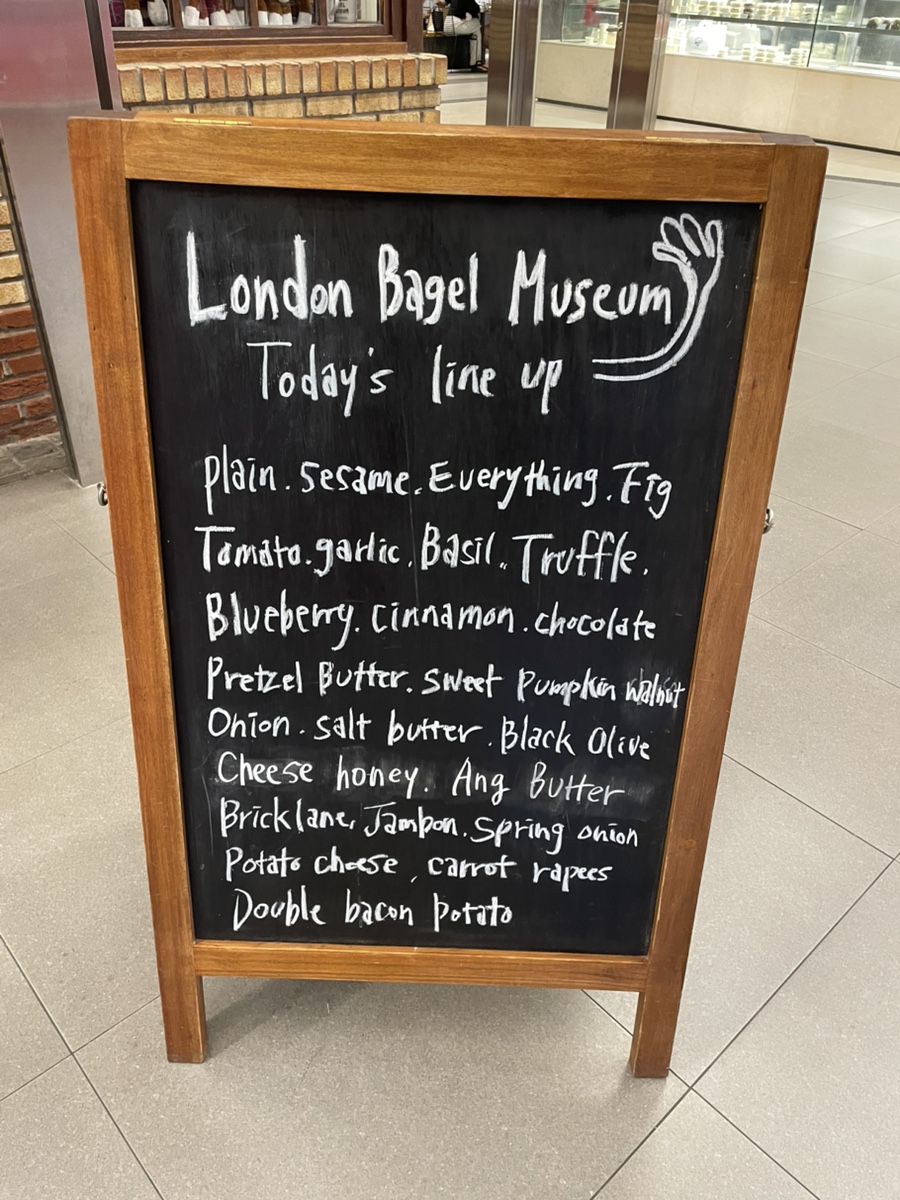 London Bagel Museum
Today's line up
plain. Sesame. Everything. Fig
Tomato. garlic. Basil. Truffle.
Blueberry. cinnamon. chocolate
Pretzel Butter. sweet Pumpkin walnut
Onion. salt butter. Black Olive
Cheese honey. Ang Butter
Bricklane, Jambon. Spring onion
Potato cheese, carrot rapees
Double bacon potato